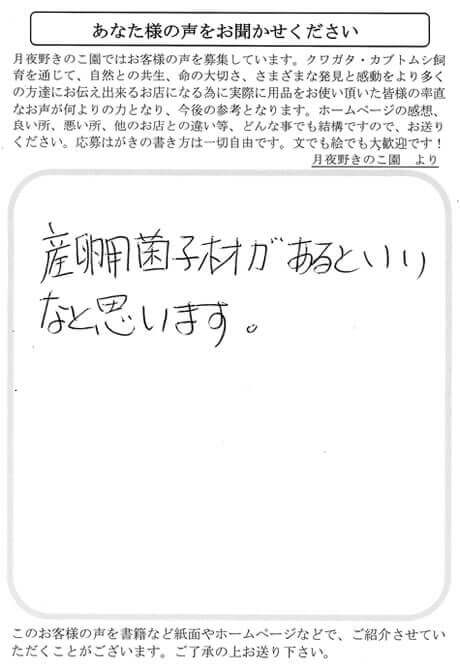 あなた様の声をお聞かせください
月夜野きのこ園ではお客様の声を募集しています。クワガタ・カブトムシ飼
育を通じて、自然との共生、命の大切さ、さまざまな発見と感動をより多く
の方達にお伝え出来るお店になる為に実際に用品をお使い頂いた皆様の率直
なお声が何よりの力となり、今後の参考となります。ホームページの感想、
良い所、悪い所、他のお店との違い等、どんな事でも結構ですので、お送り
ください。応募はがきの書き方は一切自由です。文でも絵でも大歓迎です！
月夜野きのこ園　より
産卵用菌子材があるといい
なと思います。
このお客様の声を書籍など紙面やホームページなどで、ご紹介させてい
ただくことがございます。ご了承の上お送り下さい。